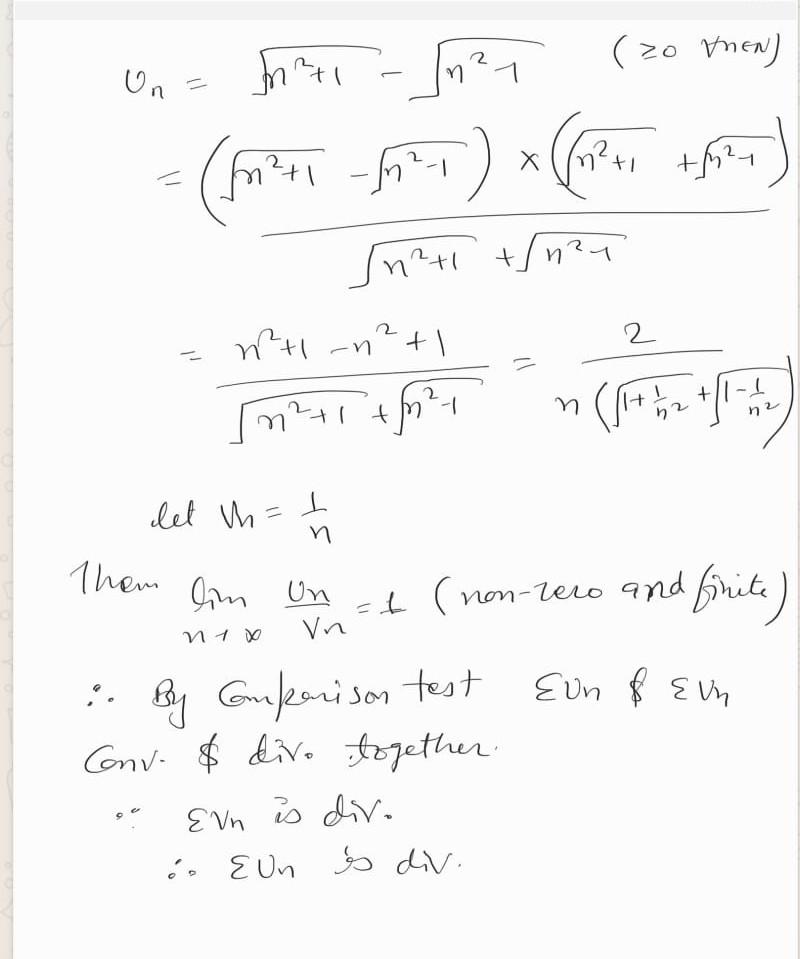 Un = √(n²+1) - √(n²-1) (≥0 ∀n∈N)
= (√(n²+1) - √(n²-1)) × (√(n²+1) + √(n²-1)) / (√(n²+1) + √(n²-1))
= (n²+1-n²+1) / (√(n²+1) + √(n²-1)) = 2 / (n(√(1+1/n²) + √(1-1/n²)))
let Vn = 1/n
Then lim n→∞ Un/Vn = 1 (non-zero and finite)
∴ By Comparison test ΣUn & ΣVn
Conv. & div. together.
∵ ΣVn is div.
∴ ΣUn is div.